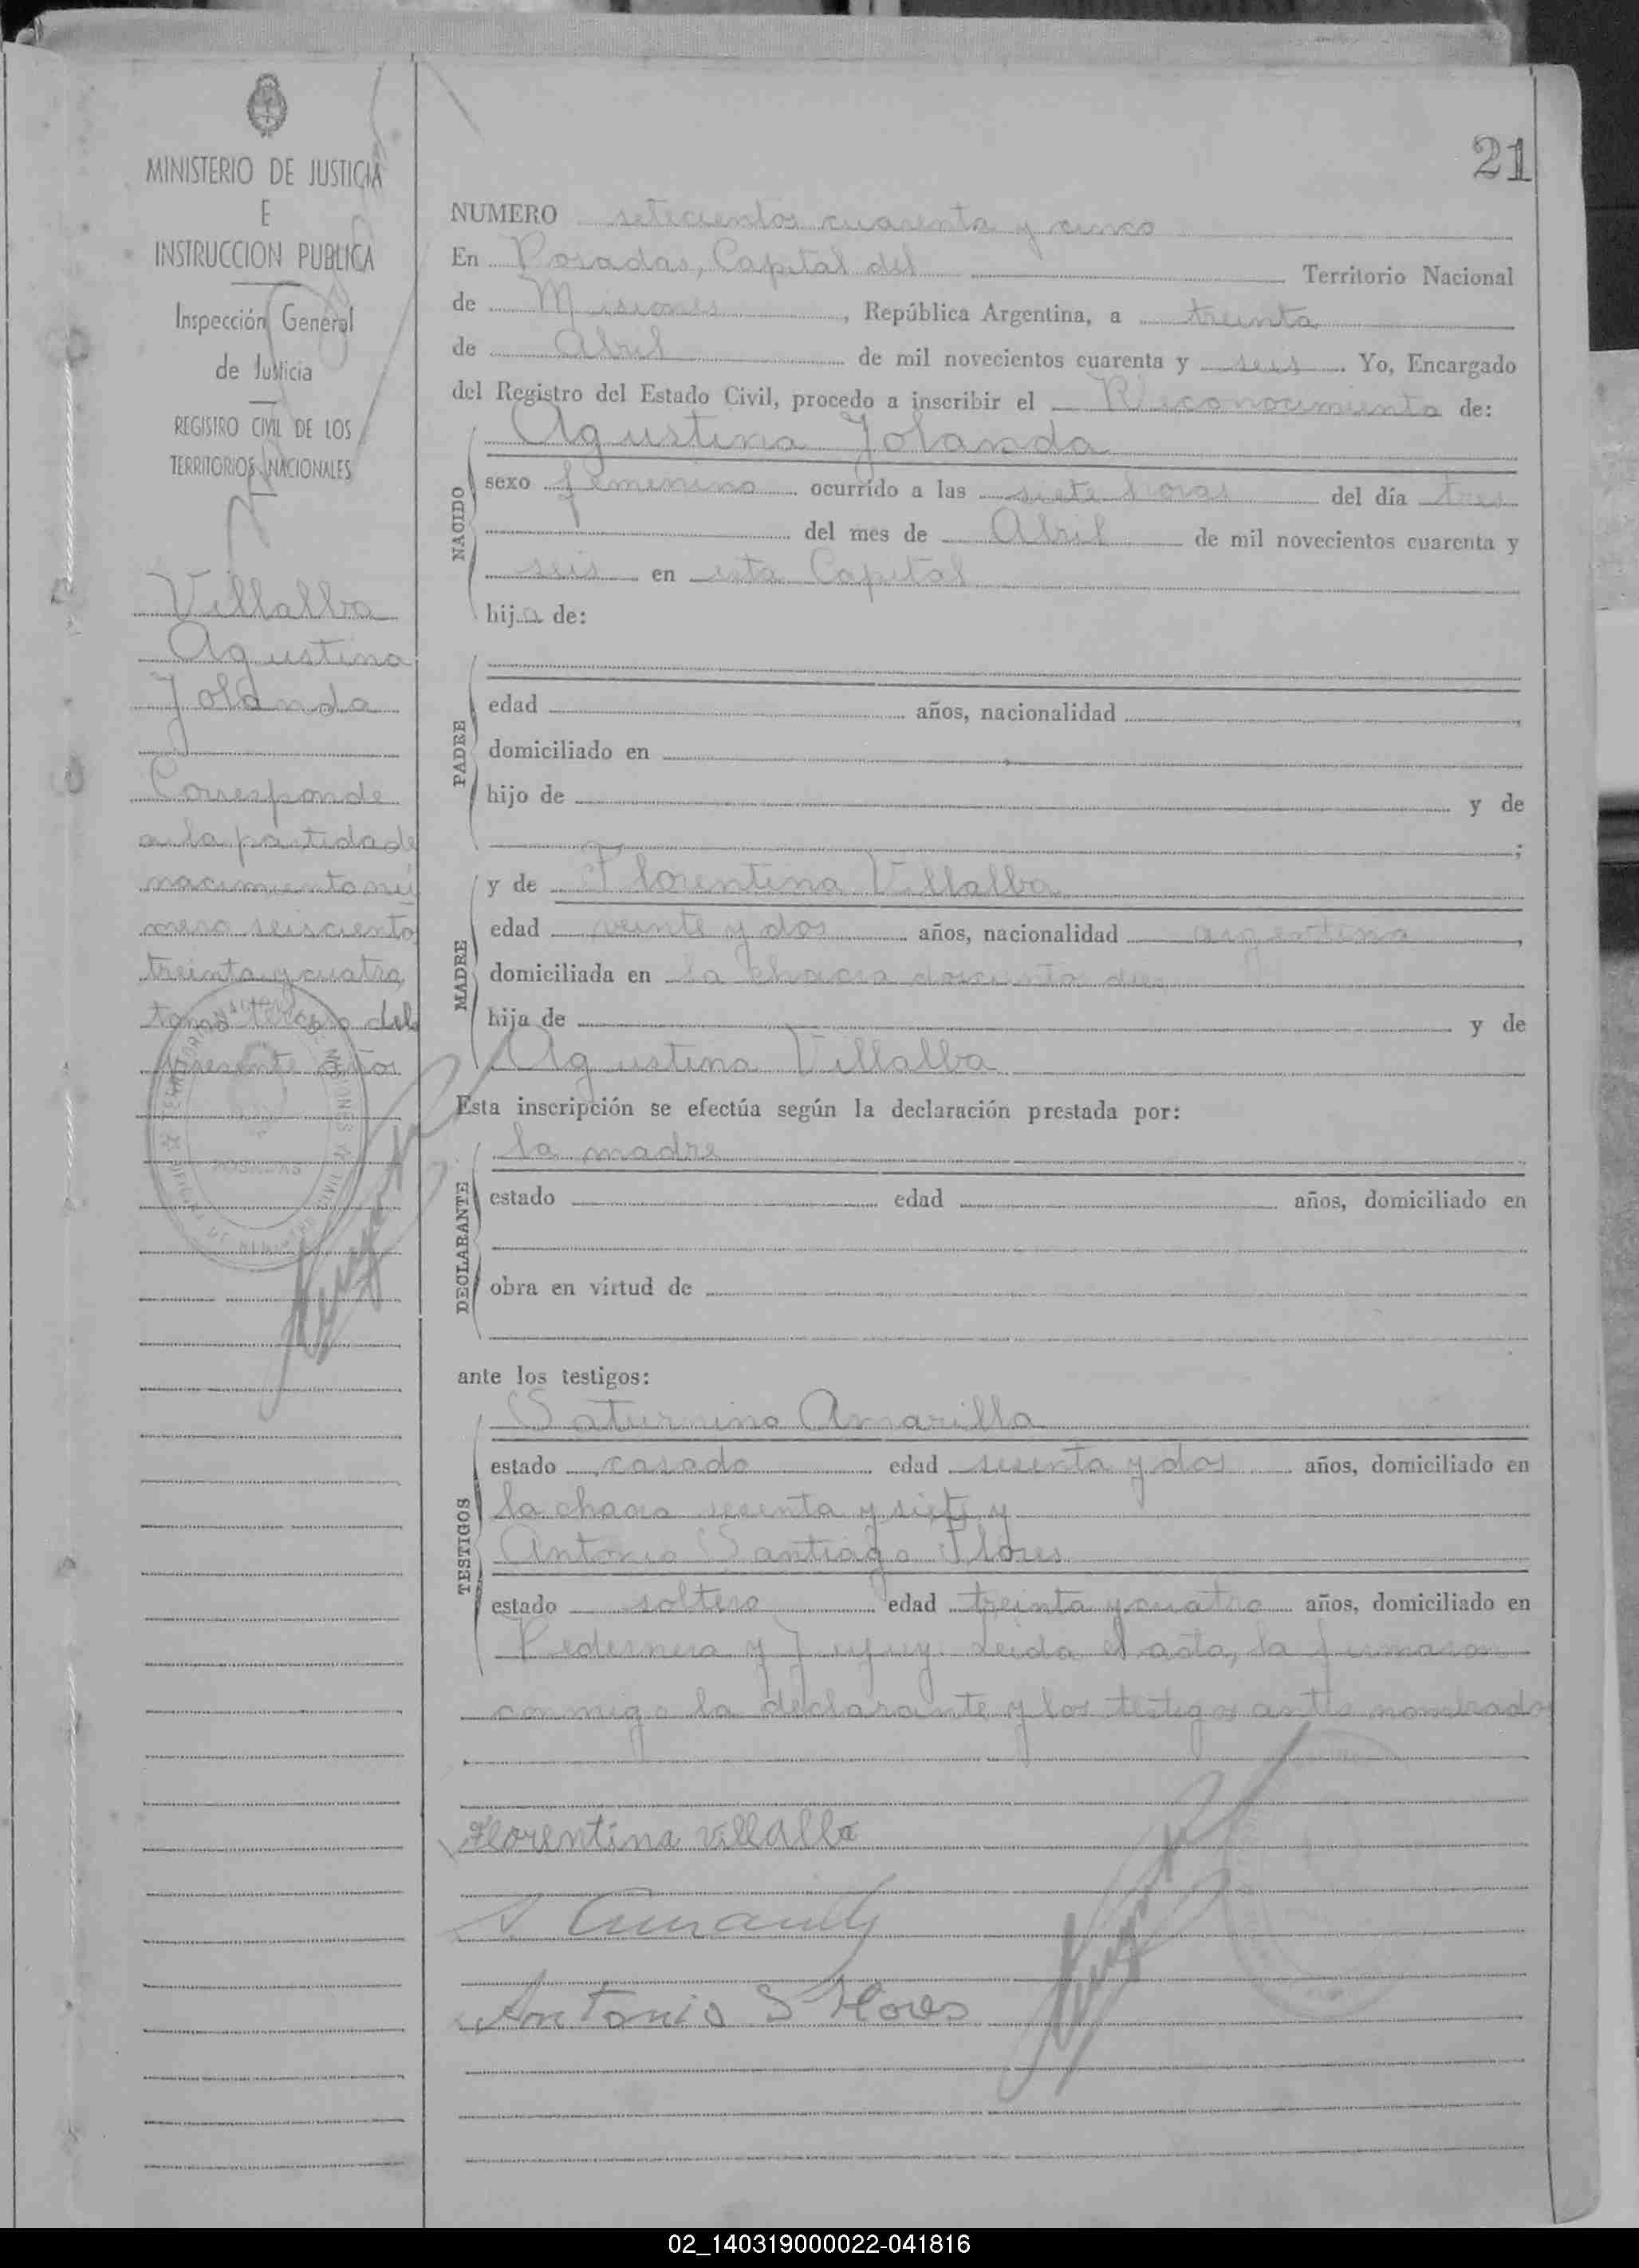 21
MINISTERIO DE JUSTICIA
E
INSTRUCCION PUBLICA
Inspección General
de Justicia
REGISTRO CIVIL DE LOS
TERRITORIOS NACIONALES
Villalba
Agustina
Jolanda
Corresponde
a la partida de
nacimiento nú
mero seiscientos
treinta y cuatro,
tomo tercero del
presente año
NUMERO setecientos cuarenta y cinco
En Posadas, Capital del Territorio Nacional
de Misiones, República Argentina, a treinta
de Abril de mil novecientos cuarenta y seis. Yo, Encargado
del Registro del Estado Civil, procedo a inscribir el Reconocimiento de:
NACIDO
Agustina Jolanda
sexo femenino ocurrido a las siete horas del día tres
del mes de Abril de mil novecientos cuarenta y
seis en esta Capital
hija de:
PADRE
edad años, nacionalidad ,
domiciliado en
hijo de y de
;
MADRE
y de Florentina Villalba
edad veinte y dos años, nacionalidad argentina,
domiciliada en la chacra doscientos diez
hija de y de
Agustina Villalba
Esta inscripción se efectúa según la declaración prestada por:
DECLARANTE
la madre
estado edad años, domiciliado en
obra en virtud de
ante los testigos:
TESTIGOS
Saturnino Amarilla
estado casado edad sesenta y dos años, domiciliado en
la chacra sesenta y siete y
Antonio Santiago Flores
estado soltero edad treinta y cuatro años, domiciliado en
Pedernera y Jujuy. Leida el acta, la firmaron
conmigo la declarante y los testigos antes nombrados
Florentina Villalba
Antonio S Flores
02_140319000022-041816